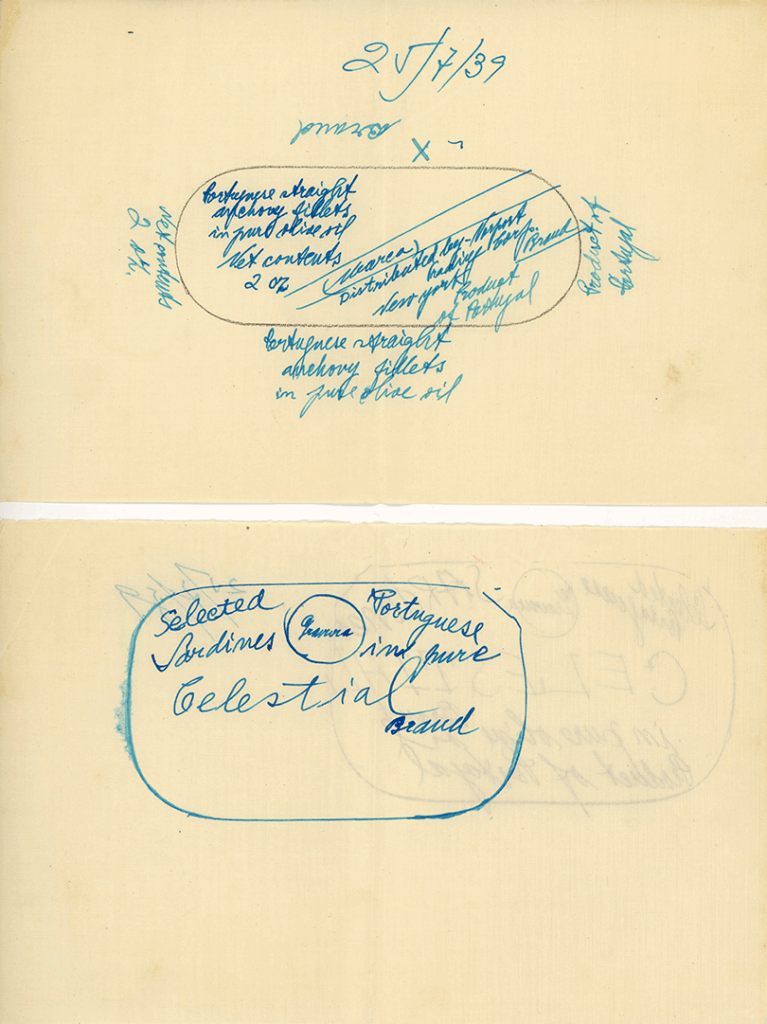 25/7/39
Brand
X
Portuguese straight
anchovy fillets
in pure olive oil
Net contents
2 oz
(Marca)
Distributed by
Trading Corp.
New York
Brand
Product
of Portugal
Net contents
2 oz.
Product of
Portugal
Portuguese straight
anchovy fillets
in pure olive oil
Selected
Sardines
Portuguese
in pure
Celestial
Brand